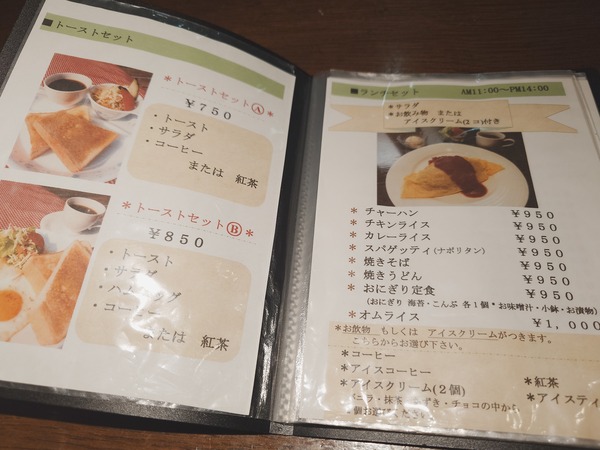 ■トーストセット
*トーストセットⒶ*
￥750
・トースト
・サラダ
・コーヒー
または 紅茶
*トーストセットⒷ*
￥850
・トースト
・サラダ
・ハム
・コーヒー
または 紅茶
■ランチセット AM11:00～PM14:00
*サラダ
*お飲み物 または
アイスクリーム(2コ)付き
* チャーハン ￥950
* チキンライス ￥950
* カレーライス ￥950
* スパゲッティ(ナポリタン) ￥950
* 焼きそば ￥950
* 焼きうどん ￥950
* おにぎり定食 ￥950
(おにぎり 海苔・こんぶ 各1個*お味噌汁・小鉢・お漬物)
*オムライス ￥1,000
*お飲物 もしくは アイスクリームがつきます。
こちらからお選び下さい。
*コーヒー
*アイスコーヒー
*アイスクリーム(2個)
バニラ・抹茶・あずき・チョコの中から
2個お選びください
*紅茶
*アイスティ